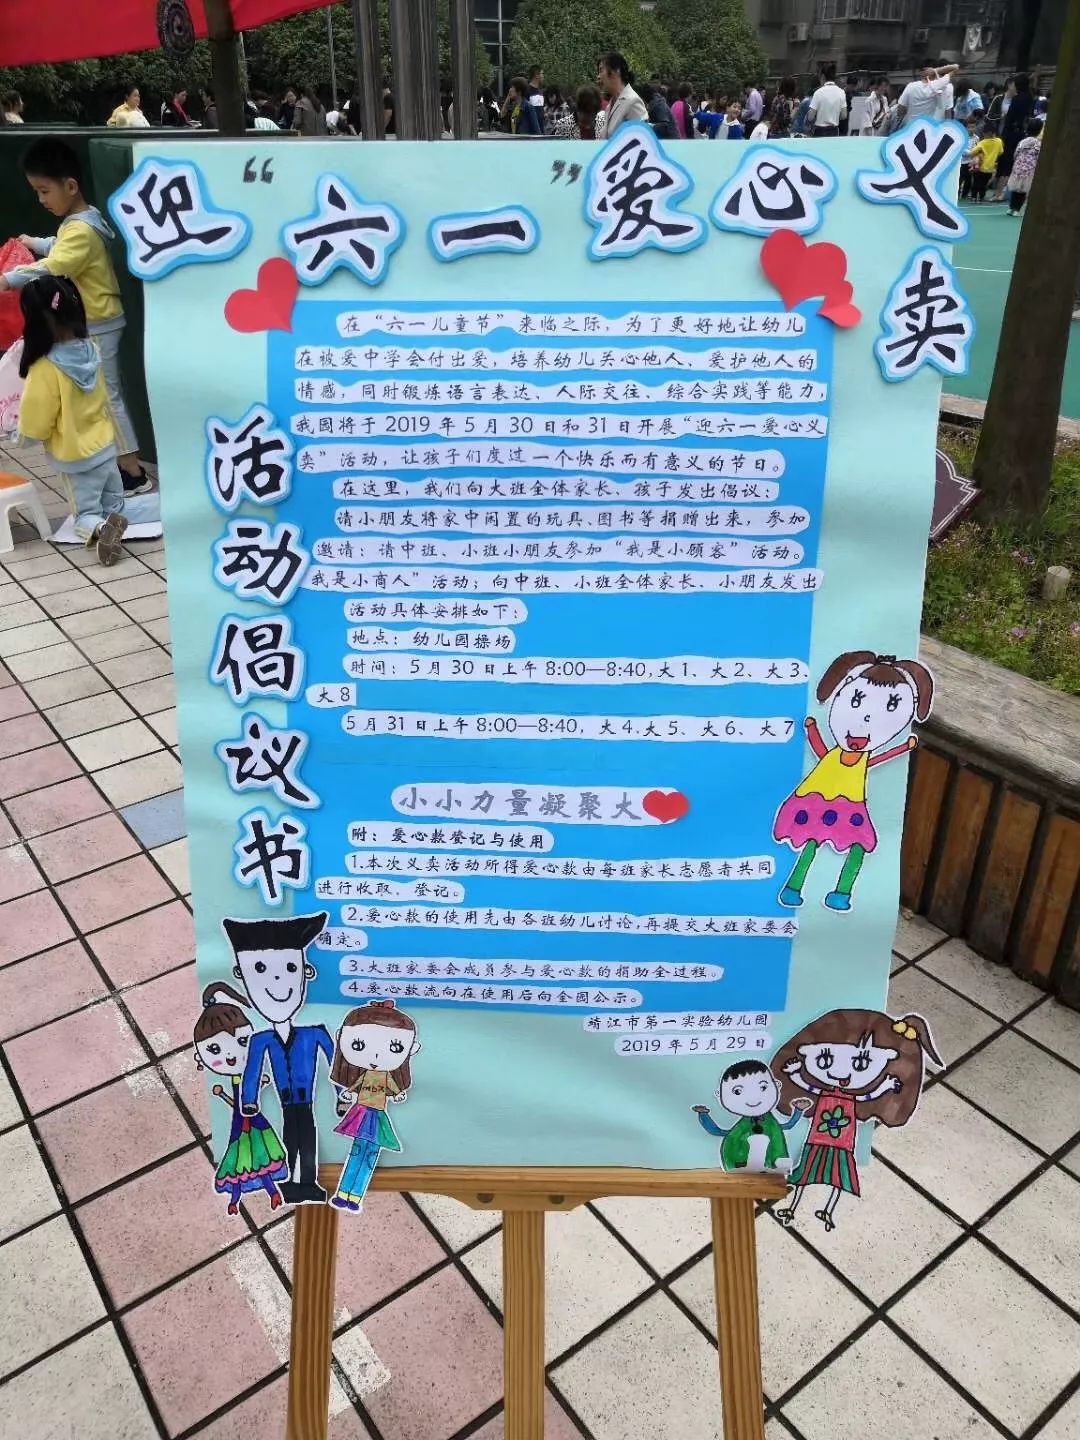 迎“六一”爱心义卖
活动倡议书
在“六一儿童节”来临之际，为了更好地让幼儿
在被爱中学会付出爱，培养幼儿关心他人、爱护他人的
情感，同时锻炼语言表达、人际交往、综合实践等能力，
我园将于 2019 年 5 月 30 日和 31 日开展“迎六一爱心义
卖”活动，让孩子们度过一个快乐而有意义的节日。
在这里，我们向大班全体家长、孩子发出倡议：
请小朋友将家中闲置的玩具、图书等捐赠出来，参加
邀请：请中班、小班小朋友参加“我是小顾客”活动。
我是小商人”活动；向中班、小班全体家长、小朋友发出
活动具体安排如下：
地点：幼儿园操场
时间：5 月 30 日上午 8:00—8:40，大 1、大 2、大 3、
大 8
5 月 31 日上午 8:00—8:40，大 4、大 5、大 6、大 7
小小力量凝聚大
附：爱心款登记与使用
1.本次义卖活动所得爱心款由每班家长志愿者共同
进行收取、登记。
2.爱心款的使用先由各班幼儿讨论，再提交大班家委会
确定。
3.大班家委会成员参与爱心款的捐助全过程。
4.爱心款流向在使用后向全园公示。
靖江市第一实验幼儿园
2019 年 5 月 29 日